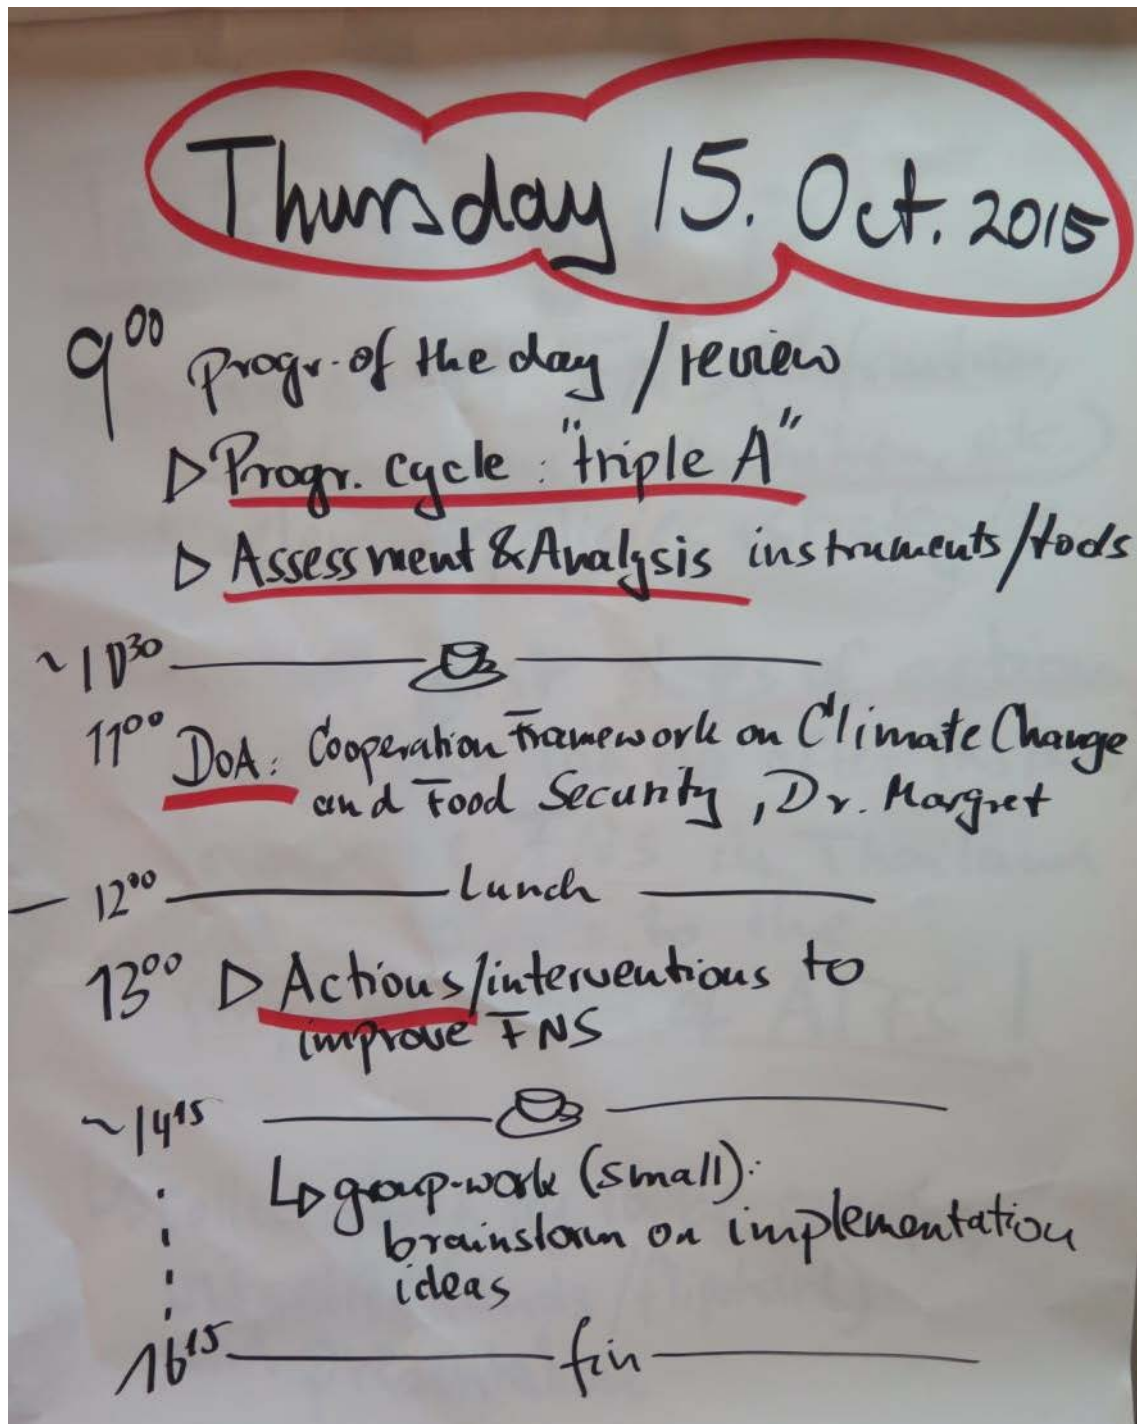 Thursday 15. Oct. 2015
9⁰⁰ progr. of the day / review
▷ Progr. cycle : "triple A"
▷ Assessment & Analysis instruments/tools
~10³⁰
11⁰⁰ DoA: Cooperation Framework on Climate Change
and Food Security, Dr. Margret
12⁰⁰ Lunch
13⁰⁰ ▷ Actions/interventions to
improve FNS
~14¹⁵
group-work (small):
brainstorm on implementation
ideas
16¹⁵ fin